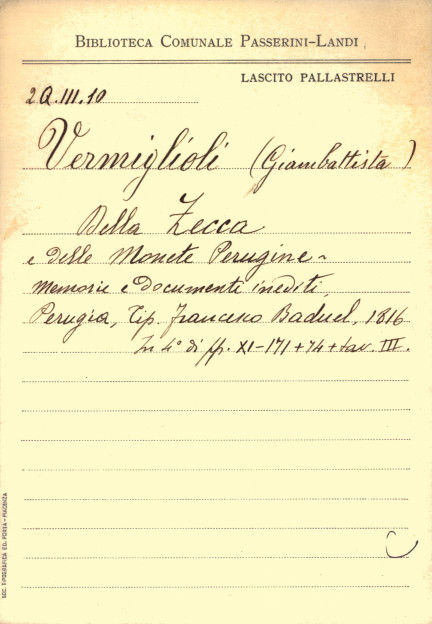 BIBLIOTECA COMUNALE PASSERINI-LANDI
LASCITO PALLASTRELLI
2Q.III.10
Vermiglioli (Giambattista)
Della Zecca
e delle Monete Perugine -
Memorie e documenti inediti,
Perugia, Tip. Francesco Baduel, 1816
In 4° di pp. XI-171+74+tav. III.
SOC. TIPOGRAFICA ED. PORTA - PIACENZA